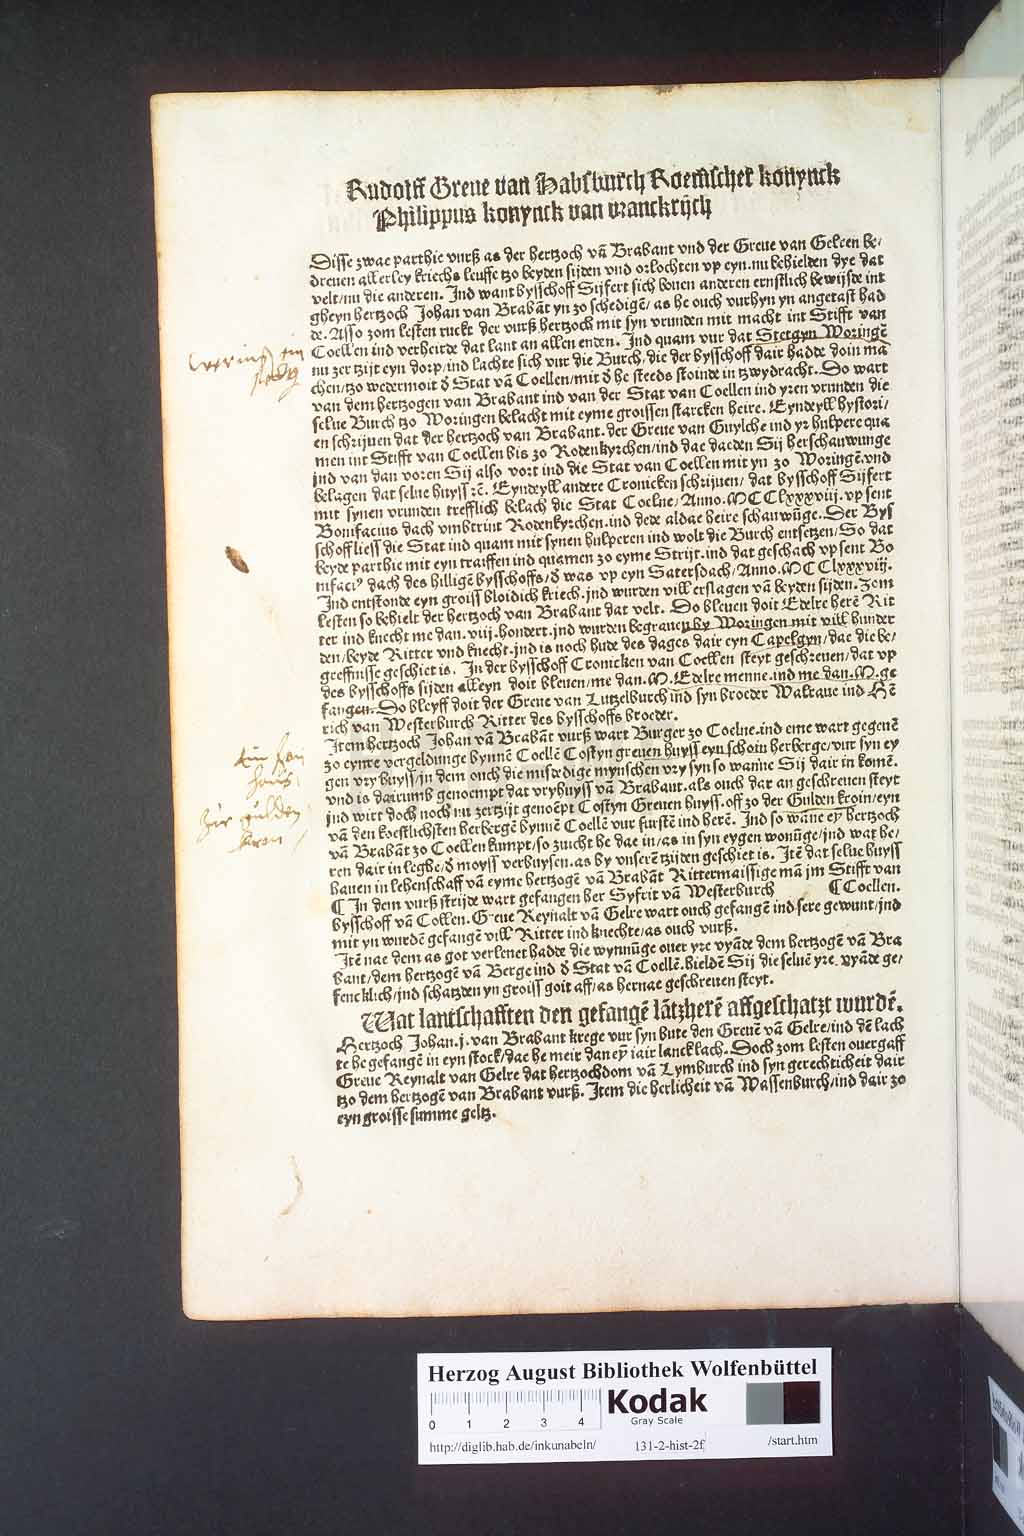 Rudolff Greue van Habsburch Roemscher konynck
Philippus konynck van vranckrijch
Disse zwae parthie vurß as der hertzoch vā Brabant vnd der Greue van Gelren be/
dreuen allerley kriechs leuffe tzo beyden sijden vnd orlochten vp eyn. nu behielden dye dat
velt/nu die anderen. Ind want bysschoff Sijfert sich bouen anderen ernstlich bewijsde int
gheyn hertzoch Johan van Brabāt yn zo schedigē/as he ouch vurhyn yn angetast had
de. Also zom lesten ruckt der vurß hertzoch mit syn vrunden mit macht int Stifft van
Coellen ind verheirde dat lant an allen enden. Ind quam vur dat Stetgyn Woringē
nu zer tzijt eyn dorp/ind lachte sich vur die Burch/die der bysschoff dair hadde doin ma
chen/tzo wedermoit d̄ Stat vā Coellen/mit d̄ he steeds stoinde in tzwydracht. So wart
van dem hertzogen van Brabant ind van der Stat van Coellen ind yren vrunden die
selue Burch tzo Woringen belacht mit eyme groissen starcken heire. Eyndeyll hystori/
en schrijuen dat der hertzoch van Brabant. der Greue van Guylche ind yr hulpere qua
men int Stifft van Coellen bis zo Rodenkyrchen/ind dae daeden Sij herschauwunge
jnd van dan voren Sij also vort ind die Stat van Coellen mit yn zo Woringē. vnd
belagen dat selue huyss ꝛc̄. Eyndeyll andere Cronicken schrijuen/ dat bysschoff Sijfert
mit synen vrunden trefflich belach die Stat Coelne/Anno. MCClxxxviij. vp sent
Bonifacius dach vmbtrint Rodenkyrchen. ind dede aldae heire schauwūge. Der Bys
schoff liess die Stat ind quam mit synen hulperen ind wolt die Burch entsetzen/So dat
beyde parthie mit eyn traiffen ind quamen zo eyme Strijt. ind dat geschach vp sent Bo
nifaciꝰ dach des hilligē bysschoffs/d̄ was vp eyn Satersdach/Anno. MCClxxxviij.
Ind entstonde eyn groiss bloidich kriech. jnd wurden vill erslagen vā beyden sijden. Zom
lesten so behielt der hertzoch van Brabant dat velt. Do bleuen doit Edelre herē Rit
ter ind knecht me dan. viij. hondert. jnd wurden begrauen by Woringen mit vill hunder
den/beyde Ritter vnd knecht. jnd is noch hude des dages dair eyn Capelgyn/dae die be/
greffnisse geschiet is. In der bysschoff Cronicken van Coellen steyt geschreuen/dat vp
des bysschoffs sijden alleyn doit bleuen/me dan. M. Edelre menne. ind me dan. M. ge
fangen. Do bleyff doit der Greue van Lutzelburch ind syn broeder Walraue ind Hē
rich van Westerburch Ritter des bysschoffs broeder.
Item hertzoch Johan vā Brabāt vurß wart Burger zo Coelne. ind eme wart gegenē
zo eynre vergeldunge bynnē Coellē Costyn greuen huyss eyn schoin herberge/vur syn ey
gen vry huyss/in dem ouch die misdedige mynschen vry syn so wanne Sij dair in komē.
vnd is dairumb genoempt dat vryhuyss vā Brabant. als ouch dar an geschreuen steyt
jnd wirt doch noch nu zertzijt genoēpt Costyn Greuen huyss. off zo der Gulden kroin/eyn
vā den koestlichsten herbergē bynnē Coellē vur furstē ind herē. Ind so wāne ey hertzoch
vā Brabāt zo Coellen kumpt/so zuicht he dae in/as in syn eygen wonūge/jnd wat he/
ren dair in leghe/d̄ moyss verhuysen. as by vnserē tzijden geschiet is. Itē dat selue huyss
hauen in lehenschaff vā eyme hertzogē vā Brabāt Rittermaissige mā jm Stifft van
¶ In dem vurß strijde wart gefangen her Syfrit vā Westerburch ¶ Coellen.
bysschoff vā Coellen. Greue Reynalt vā Gelre wart ouch gefangē ind sere gewunt/jnd
mit yn wurdē gefangē vill Ritter ind knechte/as ouch vurß.
Itē nae dem as got verlenet hadde die wynnūge ouer yre vyāde dem hertzogē vā Bra
bant/dem hertzogē vā Berge ind d̄ Stat vā Coellē. hieldē Sij die seluē yre. vyāde ge/
fencklich/jnd schatzden yn groiss goit aff/as hernae geschreuen steyt.
Wat lantschafften den gefangē lātzherē affgeschatzt wurdē.
Hertzoch Johan. j. van Brabant krege vur syn bute den Greuē vā Gelre/ind dē lach
te he gefangē in eyn stock/dae he meir dan eȳ iair lanck lach. Doch zom lesten ouergaff
Greue Reynalt van Gelre dat hertzochdom vā Lymburch ind syn gerechticheit dair
tzo dem hertzogē van Brabant vurß. Item die herlicheit vā Wassenburch/ind dair zo
eyn groisse summe geltz.
haus
Zur gulden
kron
Herzog August Bibliothek Wolfenbüttel
0 1 2 3 4
Kodak
Gray Scale
http://diglib.hab.de/inkunabeln/ 131-2-hist-2f /start.htm